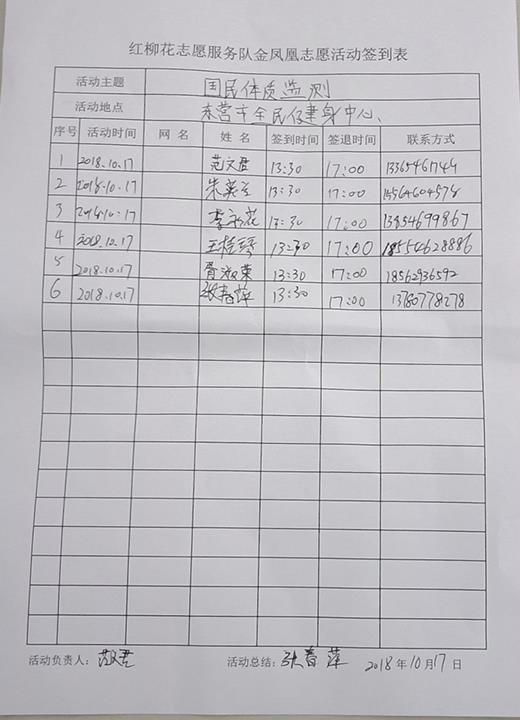 红柳花志愿服务队金凤凰志愿活动签到表
活动主题 国民体质监测
活动地点 东营市全民健身中心、
序号 活动时间 网名 姓名 签到时间 签退时间 联系方式
1 2018.10.17 范文君 13:30 17:00
2 2018.10.17 13:30 17:00 15564604578
3 2018.10.17 李永花 13:30 17:00 13854699867
4 2018.10.17 13:30 17:00 18554628886
5 2018.10.17 13:30 17:00 18562936592
6 2018.10.17 张春萍 13:30 17:00 13780778278
活动负责人: 活动总结: 张春萍 2018年10月17日